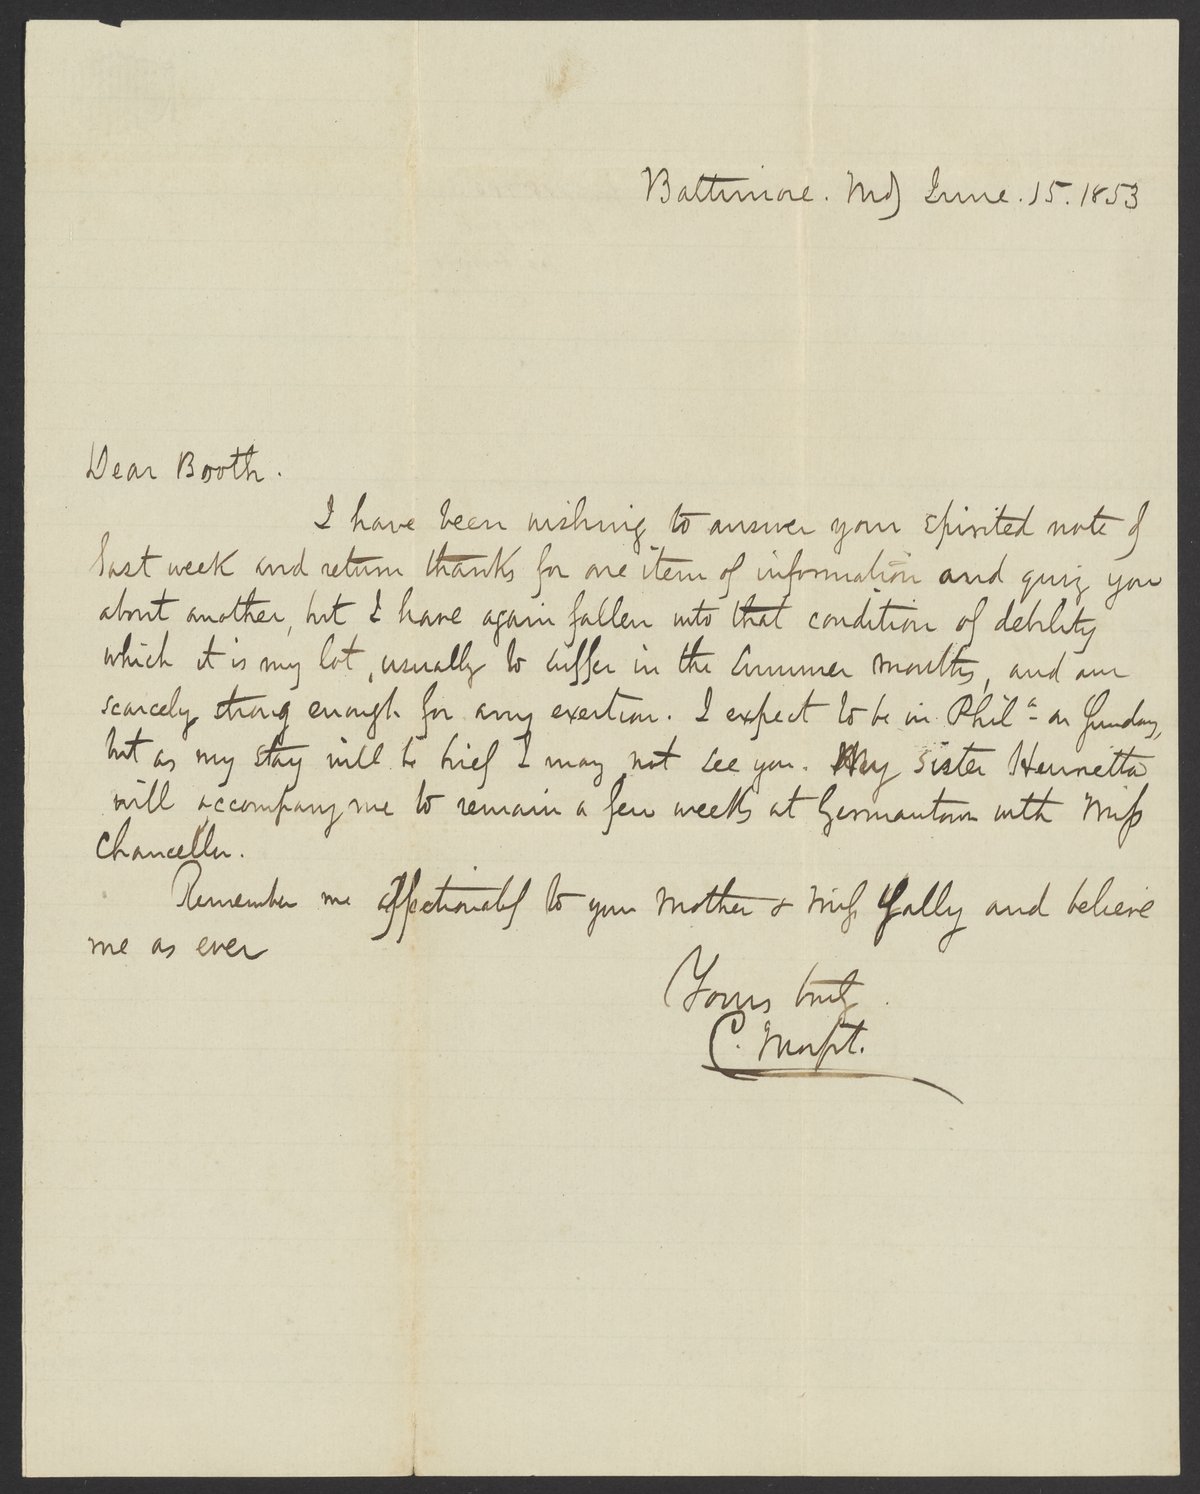 Baltimore. Md) June. 15. 1853
Dear Booth.
I have been wishing to answer your spirited note of
last week and return thanks for one item of information and quiz you
about another, but I have again fallen into that condition of debility
which it is my lot, usually to suffer in the summer months, and am
scarcely strong enough for any exertion. I expect to be in Phila on Sunday,
but as my stay will be brief I may not see you. My sister Henrietta
will accompany me to remain a few weeks at Germantown with Miss
Chancellor.
Remember me affectionately to your Mother & Miss Gally and believe
me as ever
Yours truly
C. Morfit.